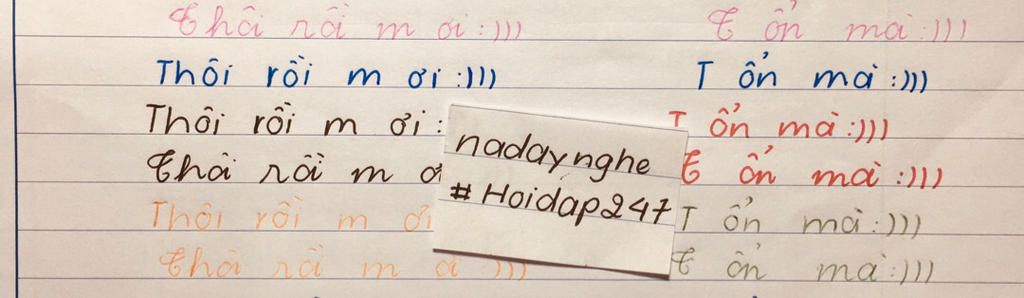 Thôi rồi m ơi:))) T ổn mà:)))
Thôi rồi m ơi:))) T ổn mà:)))
Thôi rồi m ơi: T ổn mà:)))
Thôi rồi m ơ T ổn mà:)))
Thôi rồi m ơi T ổn mà:)))
Thôi rồi m ơi :))) T ổn mà:)))
nadaynghe
#Hoidap247